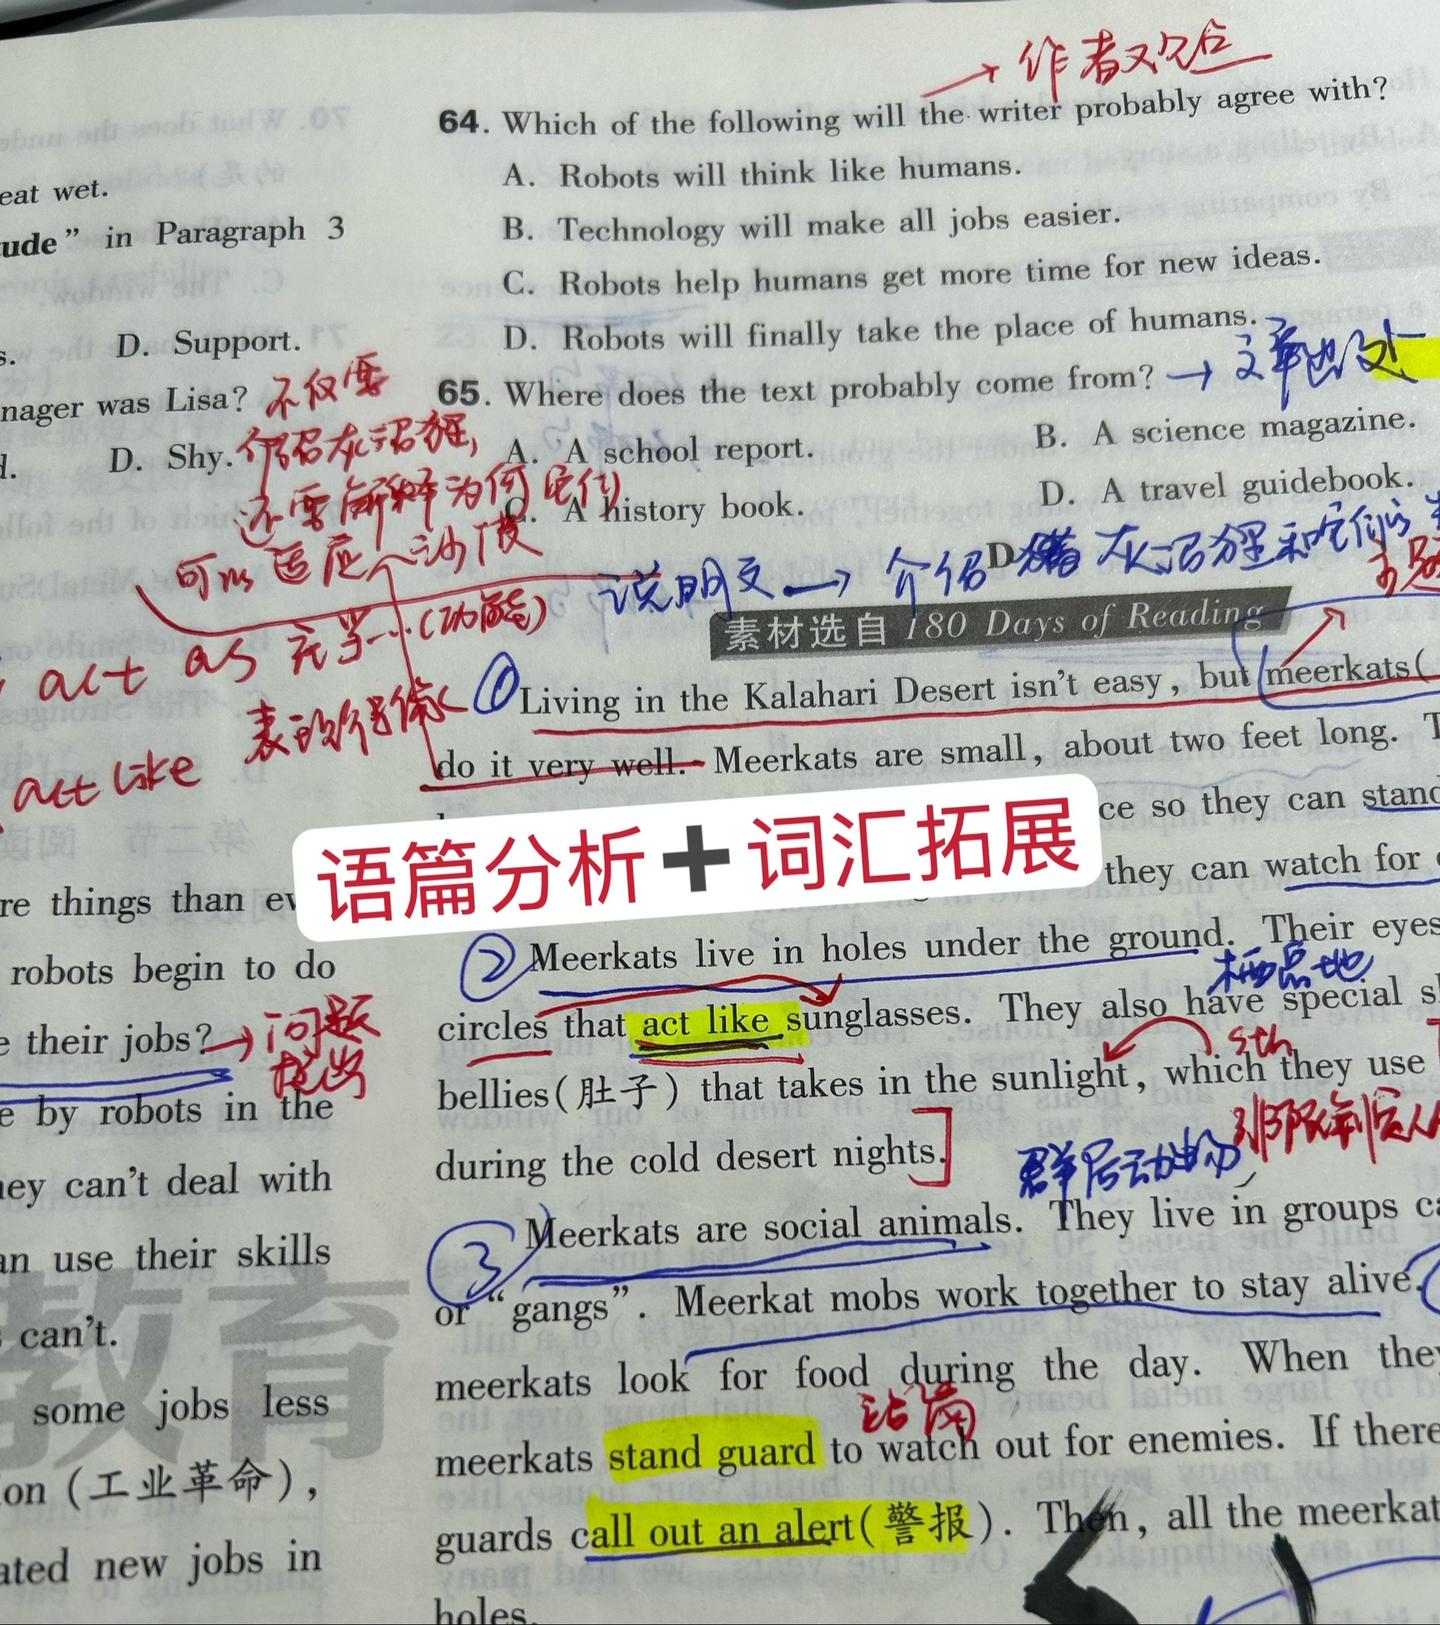 eat wet.
ude" in Paragraph 3
s. D. Support.
nager was Lisa? 不仅要
d. D. Shy. 介绍灰沼狸,
还要解释为何它们
可以适应沙漠
act as 充当…(功能)
act like 表现得像
re things than ev
robots begin to do
e their jobs? → 问题
提出
e by robots in the
ney can't deal with
an use their skills
s can't.
教育
some jobs less
on (工业革命),
ated new jobs in
→ 作者观点
64. Which of the following will the writer probably agree with?
A. Robots will think like humans.
B. Technology will make all jobs easier.
C. Robots help humans get more time for new ideas.
D. Robots will finally take the place of humans.
65. Where does the text probably come from? → 文章出处
A. A school report. B. A science magazine.
C. A history book. D. A travel guidebook.
D
说明文 → 介绍 灰沼狸和它们的
素材选自 180 Days of Reading
① Living in the Kalahari Desert isn't easy, but meerkats(
do it very well. Meerkats are small, about two feet long. T
ce so they can stand
语篇分析➕词汇拓展
they can watch for
② Meerkats live in holes under the ground. Their eyes
栖息地
circles that act like sunglasses. They also have special s
sth
bellies(肚子) that takes in the sunlight, which they use
非限制定从
during the cold desert nights.
群居动物
③ Meerkats are social animals. They live in groups ca
or "gangs". Meerkat mobs work together to stay alive.
meerkats look for food during the day. When the
站岗
meerkats stand guard to watch out for enemies. If there
guards call out an alert(警报). Then, all the meerkat
holes.